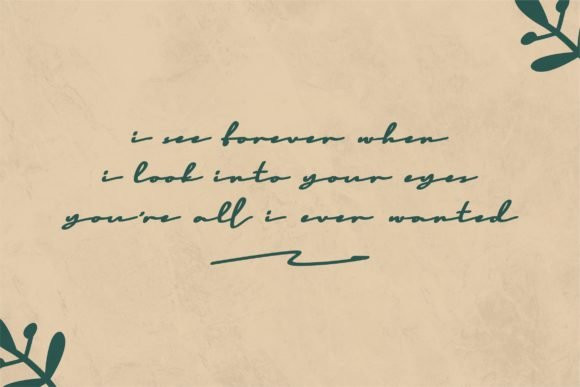 i see forever when
i look into your eyes
you're all i ever wanted